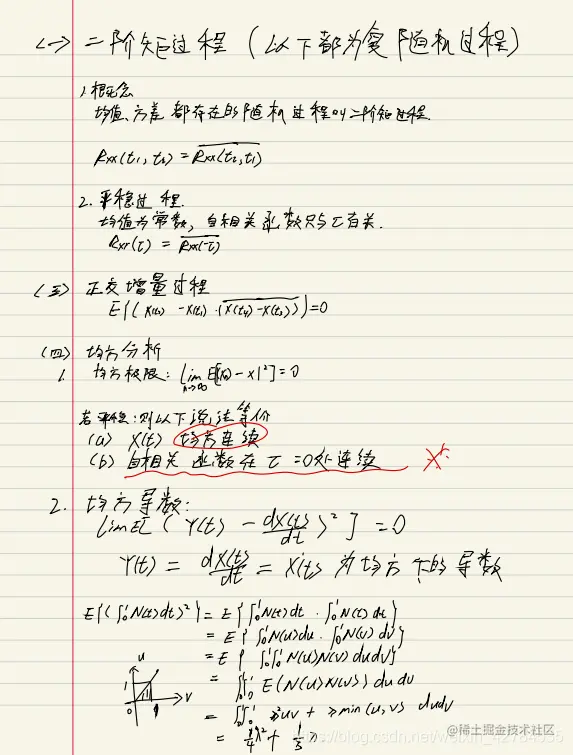 (一) 二阶矩过程 (以下都为复随机过程)
1.概念
均值、方差都存在的随机过程叫二阶矩过程
Rxx(t1, t2) = \overline{Rxx(t2, t1)}
2.平稳过程.
均值为常数, 自相关函数只与τ有关.
Rxx(τ) = \overline{Rxx(-τ)}
(三) 正交增量过程
E{(X(t2) - X(t1)) · \overline{(X(t4) - X(t3))}} = 0
(四) 均方分析
1. 均方极限: lim n→∞ E[|X(n) - X|²] = 0
若平稳: 则以下说法等价
(a) X(t) 均方连续
(b) 自相关函数在 τ=0处连续
2. 均方导数:
lim E[(Y(t) - dX(t)/dt)²] = 0
Y(t) = dX(t)/dt = X'(t) 为均方下的导数
E{(∫₀¹N(t)dt)²} = E{∫₀¹N(t)dt · ∫₀¹N(t)dt}
= E{∫₀¹N(u)du · ∫₀¹N(v)dv}
= E{∫₀¹∫₀¹N(u)N(v)dudv}
= ∫₀¹∫₀¹ E(N(u)N(v)) du dv
= ∫₀¹∫₀¹ λ²uv + λmin(u,v) dudv
= ¼λ² + ⅓λ
u
1
0
1
v
@稀土掘金技术社区